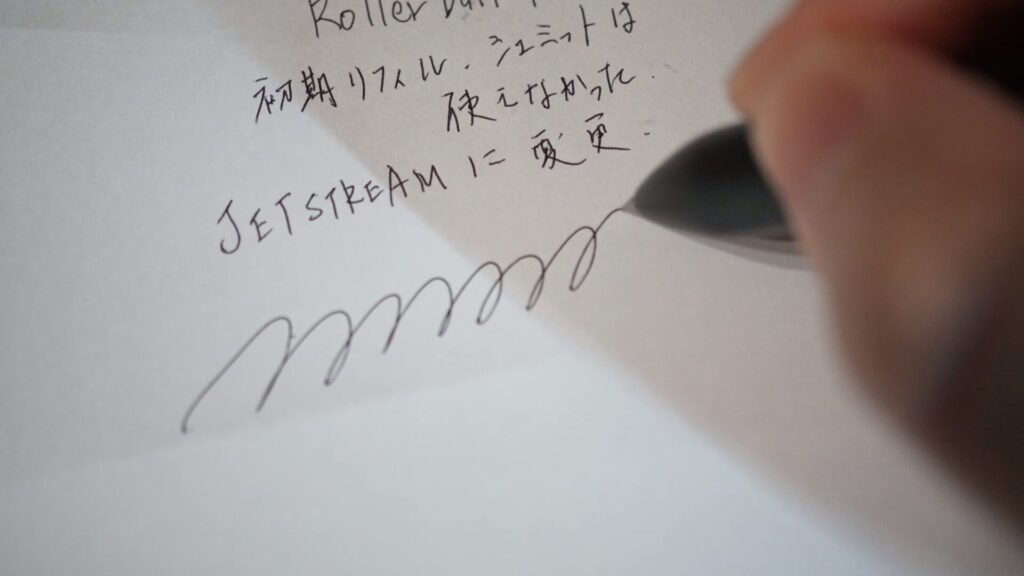 Roller
初期リフィル.シュミットは
使えなかった.
JETSTREAMに変更.